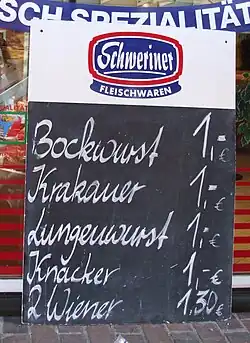 SCH SPEZIALITÄT
Schweriner
FLEISCHWAREN
Bockwurst 1,-€
Krakauer 1,-€
Lungenwurst 1,-€
Knacker 1,-€
2 Wiener 1,30€